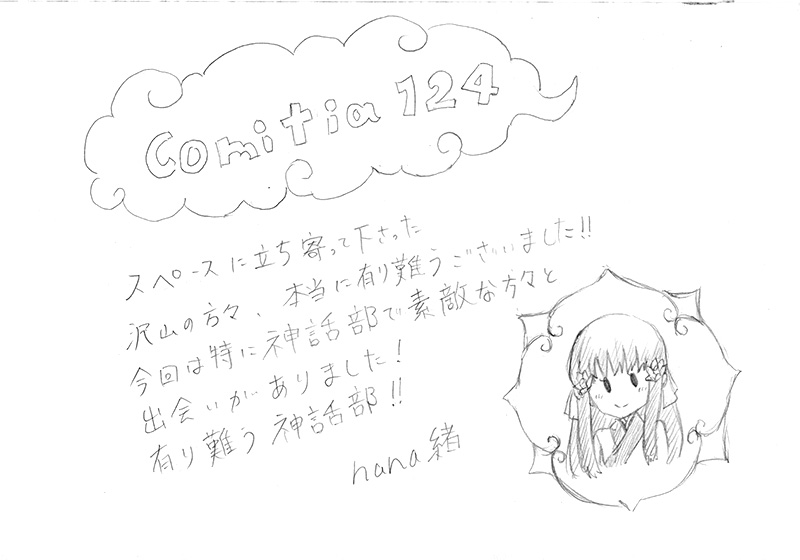 Comitia 124
スペースに立ち寄って下さった
沢山の方々、本当に有り難うございました!!
今回は特に神話部で素敵な方々と
出会いがありました!
有り難う神話部!!
nana緒